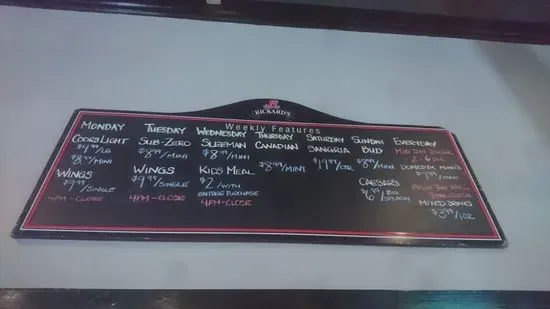 RICKARD'S
Weekly Features
MONDAY
COORS LIGHT
$4.99/LG
$8.99/MINI
WINGS
$9.99/SINGLE
4PM-CLOSE
TUESDAY
SUB-ZERO
$8.99/MINI
WINGS
$9.99/SINGLE
4PM-CLOSE
WEDNESDAY
SLEEMAN
$8.99/MINI
KIDS MEAL
$2/WITH
ENTREE PURCHASE
4PM-CLOSE
THURSDAY
CANADIAN
$8.99/MINI
SATURDAY
SANGRIA
$19.99/LTR
SUNDAY
BUD
$8.99/MINI
CAESARS
$6.99/BIG
SPLASH
EVERYDAY
MID DAY
2-6 PM
DOMESTIC MINI'S
$7.99/MINI
9PM-CLOSE
MIXED DRINKS
$3.99/1OZ